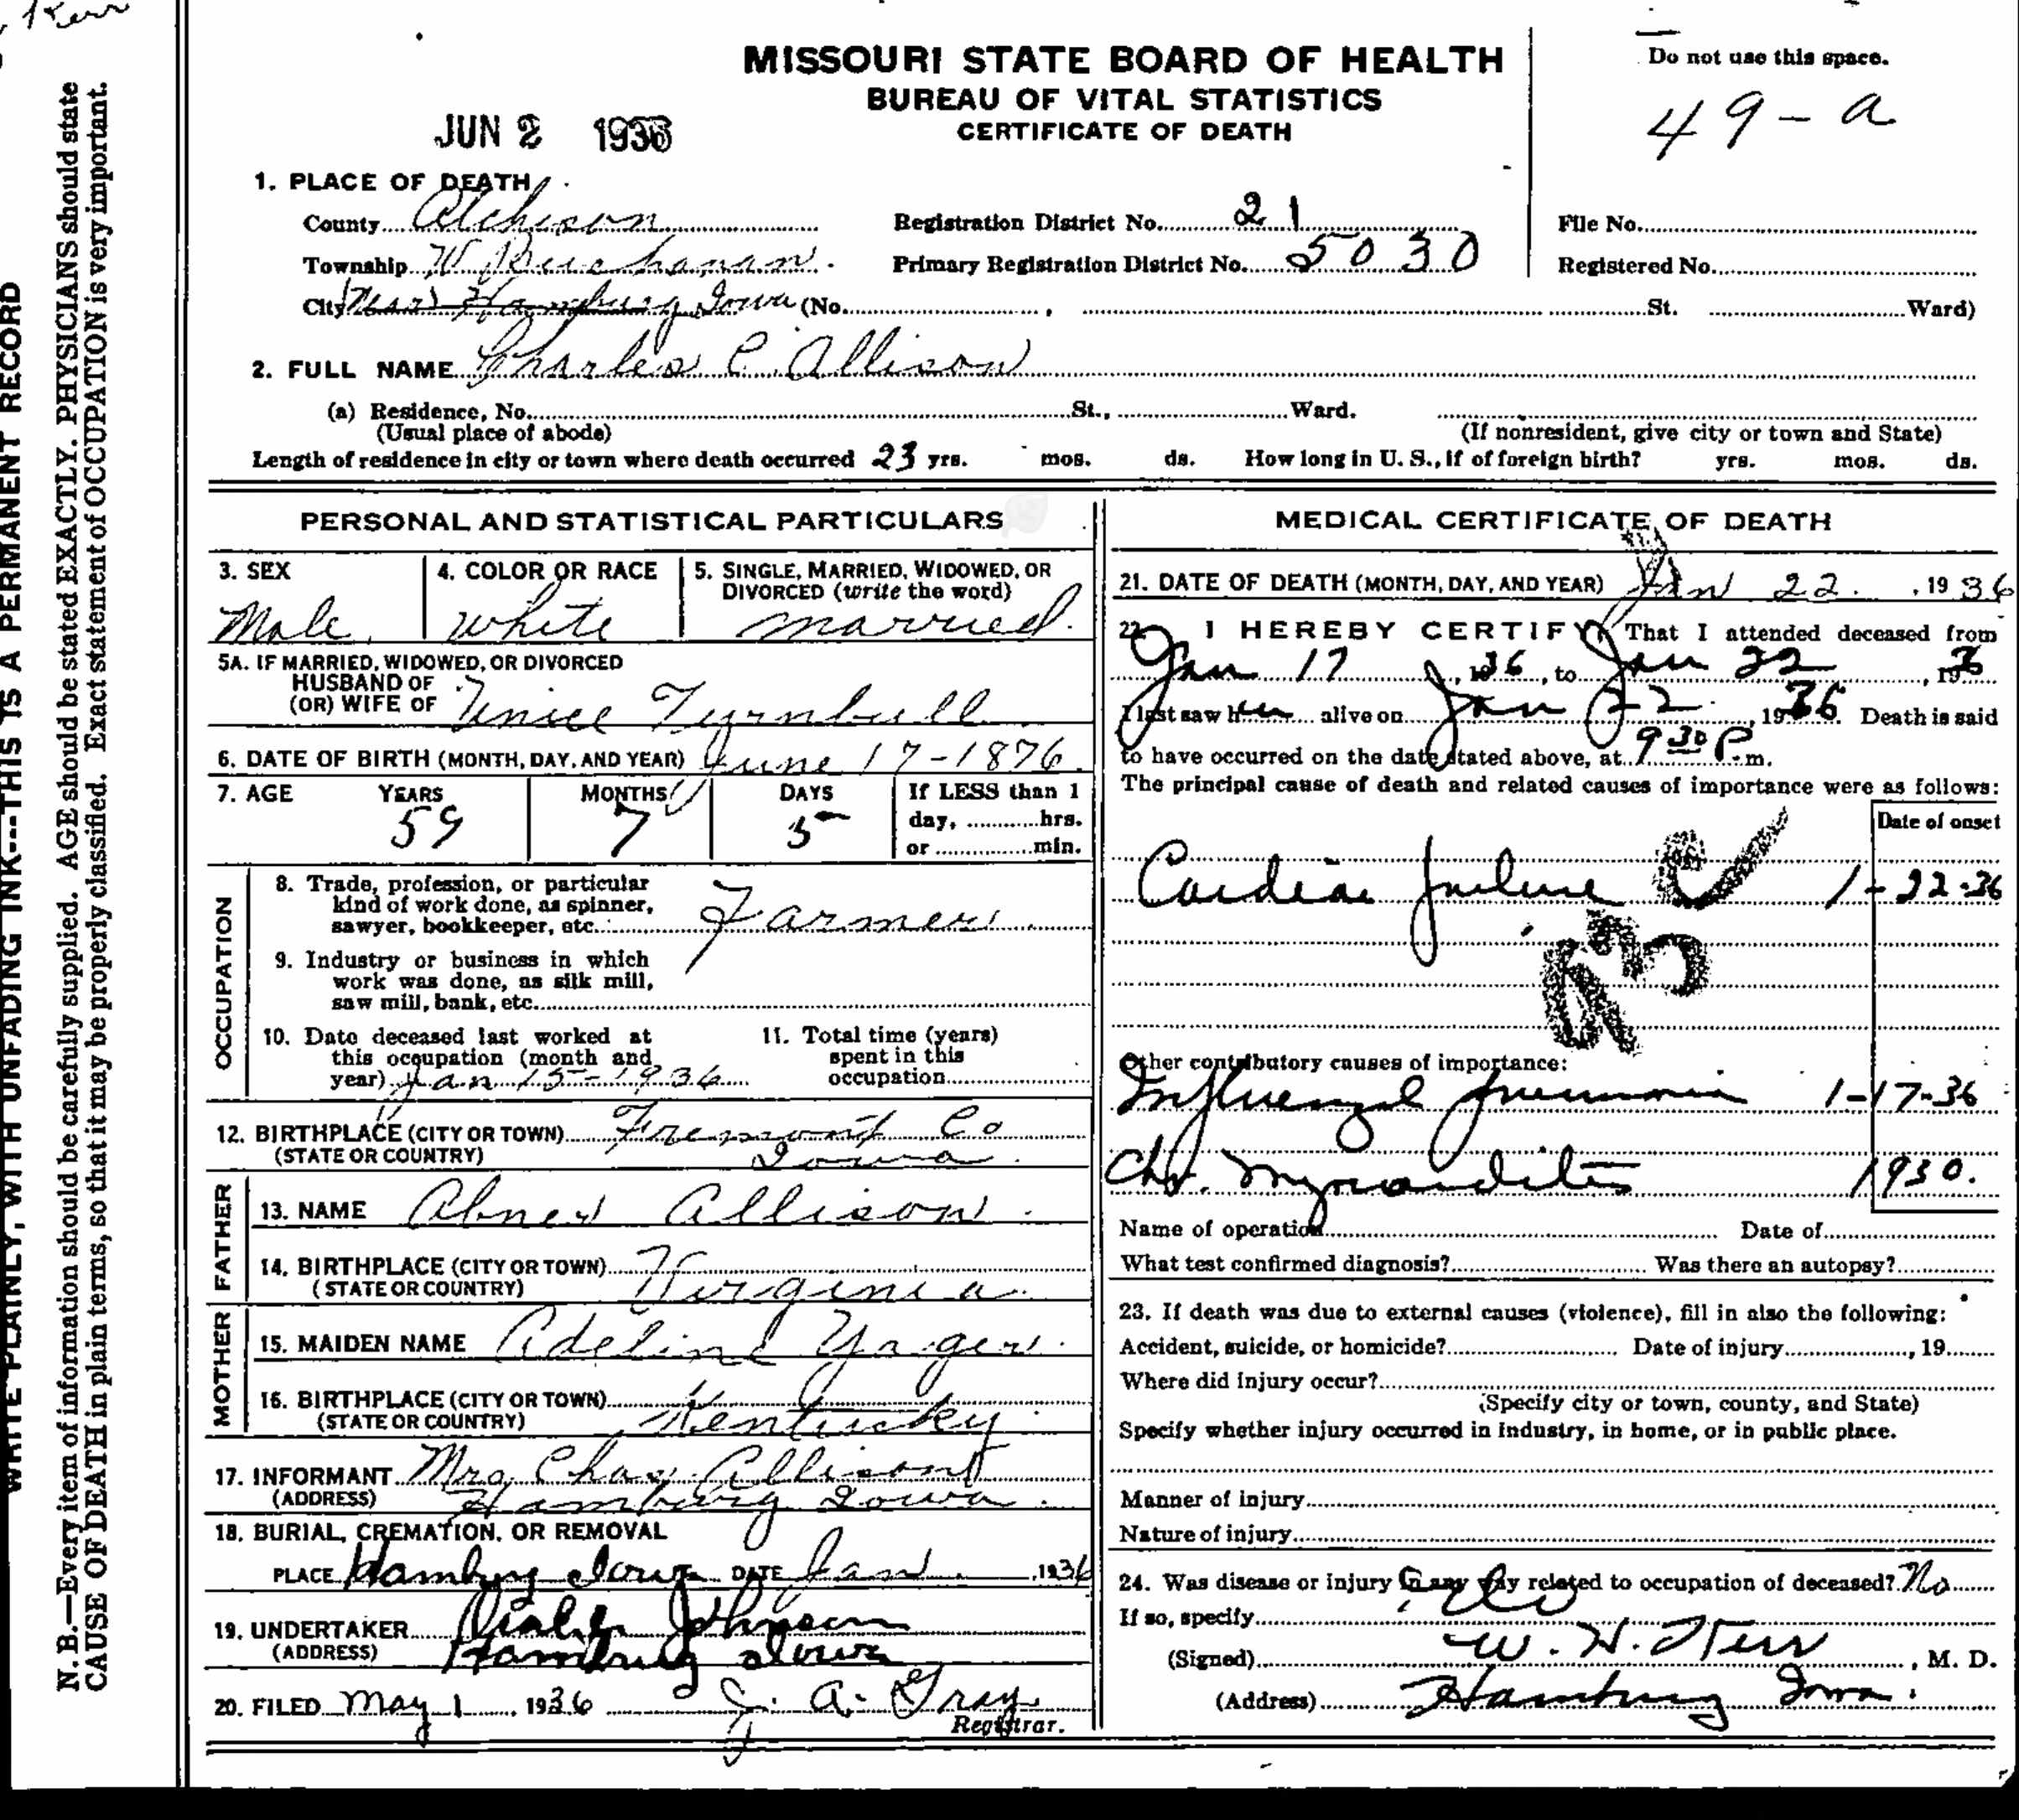 Kerr
WRITE PLAINLY, WITH UNFADING INK---THIS IS A PERMANENT RECORD
N. B.—Every item of information should be carefully supplied. AGE should be stated EXACTLY. PHYSICIANS should state
CAUSE OF DEATH in plain terms, so that it may be properly classified. Exact statement of OCCUPATION is very important.
MISSOURI STATE BOARD OF HEALTH
BUREAU OF VITAL STATISTICS
CERTIFICATE OF DEATH
Do not use this space.
49-a
JUN 2 1936
1. PLACE OF DEATH
County Atchison Registration District No. 21 File No.
Township W Buchanan Primary Registration District No. 5030 Registered No.
City (Near) Hamburg Iowa (No. , St. Ward)
2. FULL NAME Charles C. Allison
(a) Residence, No. St., Ward.
(Usual place of abode) (If nonresident, give city or town and State)
Length of residence in city or town where death occurred 23 yrs. mos. ds. How long in U. S., if of foreign birth? yrs. mos. ds.
PERSONAL AND STATISTICAL PARTICULARS
3. SEX 4. COLOR OR RACE 5. SINGLE, MARRIED, WIDOWED, OR
DIVORCED (write the word)
Male White married.
5A. IF MARRIED, WIDOWED, OR DIVORCED
HUSBAND OF
(OR) WIFE OF Turnbull
6. DATE OF BIRTH (MONTH, DAY, AND YEAR) June 17-1876
7. AGE YEARS MONTHS DAYS If LESS than 1
59 7 5 day, hrs.
or min.
OCCUPATION
8. Trade, profession, or particular
kind of work done, as spinner,
sawyer, bookkeeper, etc. Farmer
9. Industry or business in which
work was done, as silk mill,
saw mill, bank, etc.
10. Date deceased last worked at
this occupation (month and
year) Jan 15-1936
11. Total time (years)
spent in this
occupation
12. BIRTHPLACE (CITY OR TOWN) Fremont Co
(STATE OR COUNTRY) Iowa
FATHER
13. NAME Abner Allison
14. BIRTHPLACE (CITY OR TOWN)
(STATE OR COUNTRY) Virginia
MOTHER
15. MAIDEN NAME Adeline Yager
16. BIRTHPLACE (CITY OR TOWN)
(STATE OR COUNTRY) Kentucky
17. INFORMANT Mrs Chas Allison
(ADDRESS) Hamburg Iowa
18. BURIAL, CREMATION, OR REMOVAL
PLACE Hamburg Iowa DATE Jan , 1936
19. UNDERTAKER Johnson
(ADDRESS) Hamburg Iowa
20. FILED May 1, 1936 J. A. Gray
Registrar.
MEDICAL CERTIFICATE OF DEATH
21. DATE OF DEATH (MONTH, DAY, AND YEAR) Jan 22. , 1936
22. I HEREBY CERTIFY, That I attended deceased from
Jan 17 , 1936, to Jan 22 , 1936
I last saw him alive on Jan 22 , 1936. Death is said
to have occurred on the date stated above, at 9 30 P.m.
The principal cause of death and related causes of importance were as follows:
Date of onset
Cardiac failure 1-22-36
Other contributory causes of importance:
Influenzal pneumonia 1-17-36
Chr. Myocarditis 1930.
Name of operation Date of
What test confirmed diagnosis? Was there an autopsy?
23. If death was due to external causes (violence), fill in also the following:
Accident, suicide, or homicide? Date of injury , 19
Where did injury occur?
(Specify city or town, county, and State)
Specify whether injury occurred in industry, in home, or in public place.
Manner of injury
Nature of injury
24. Was disease or injury in any way related to occupation of deceased? No
If so, specify No
(Signed) W. H. Kerr , M. D.
(Address) Hamburg Iowa.